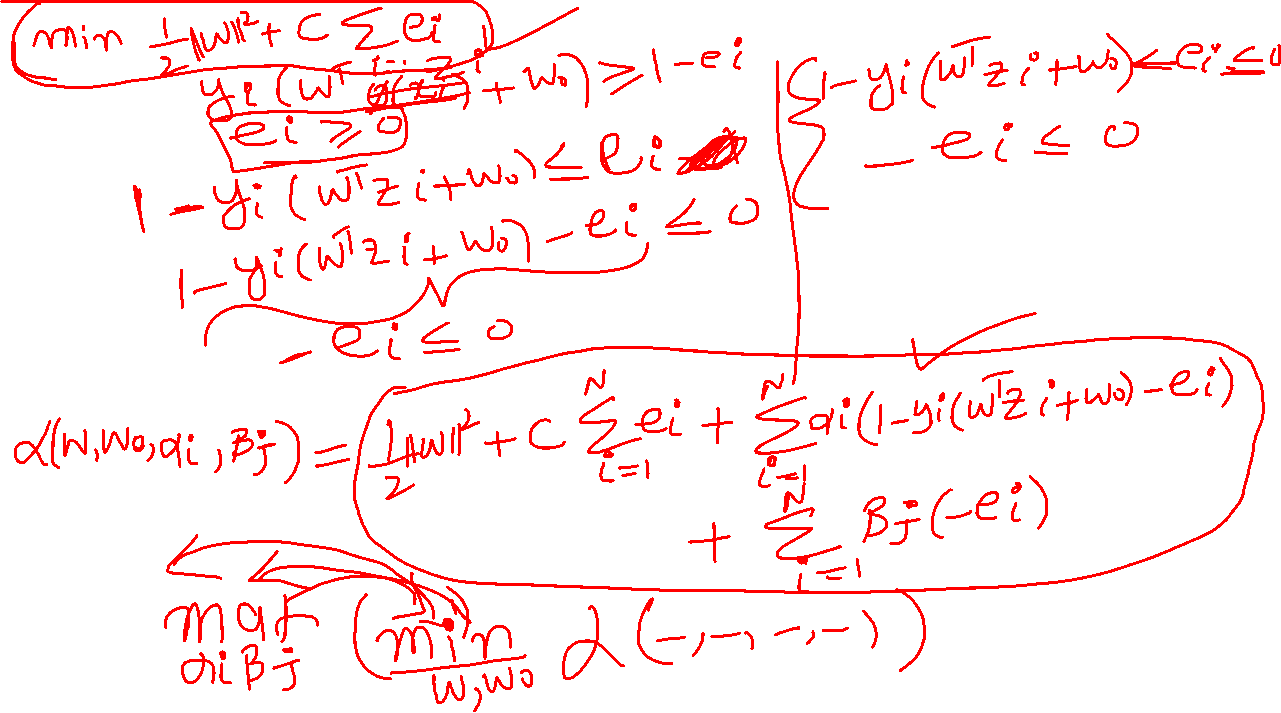 min 1/2 ||w||² + C Σ ei
yi (wᵀ zi + w₀) ≥ 1 - ei
ei ≥ 0
1 - yi (wᵀ zi + w₀) ≤ ei
1 - yi (wᵀ zi + w₀) - ei ≤ 0
- ei ≤ 0
{ 1 - yi (wᵀ zi + w₀) ≤ ei ≤ 0
- ei ≤ 0
α(w, w₀, αi, βj) = 1/2 ||w||² + C Σ_{i=1}^{N} ei + Σ_{i=1}^{N} αi (1 - yi (wᵀ zi + w₀) - ei)
+ Σ_{i=1}^{N} βj (-ei)
max (min α(-, -, -, -))
αi βj w, w₀